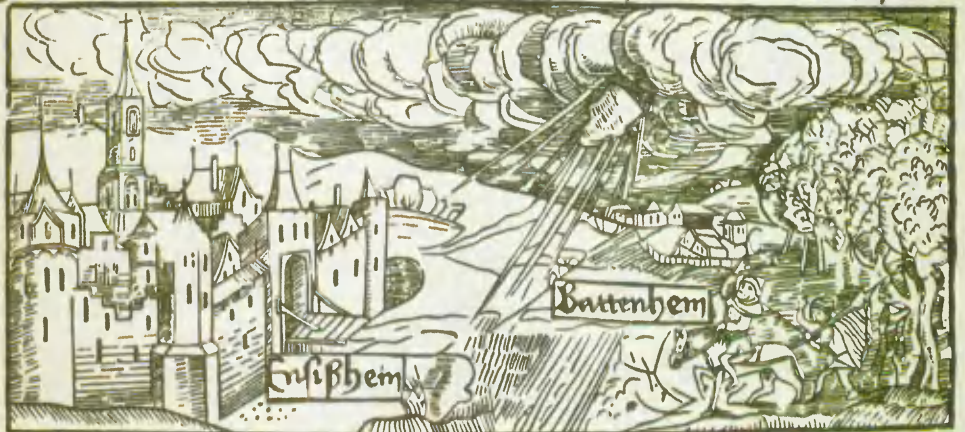 Battenhem
Ensißhem